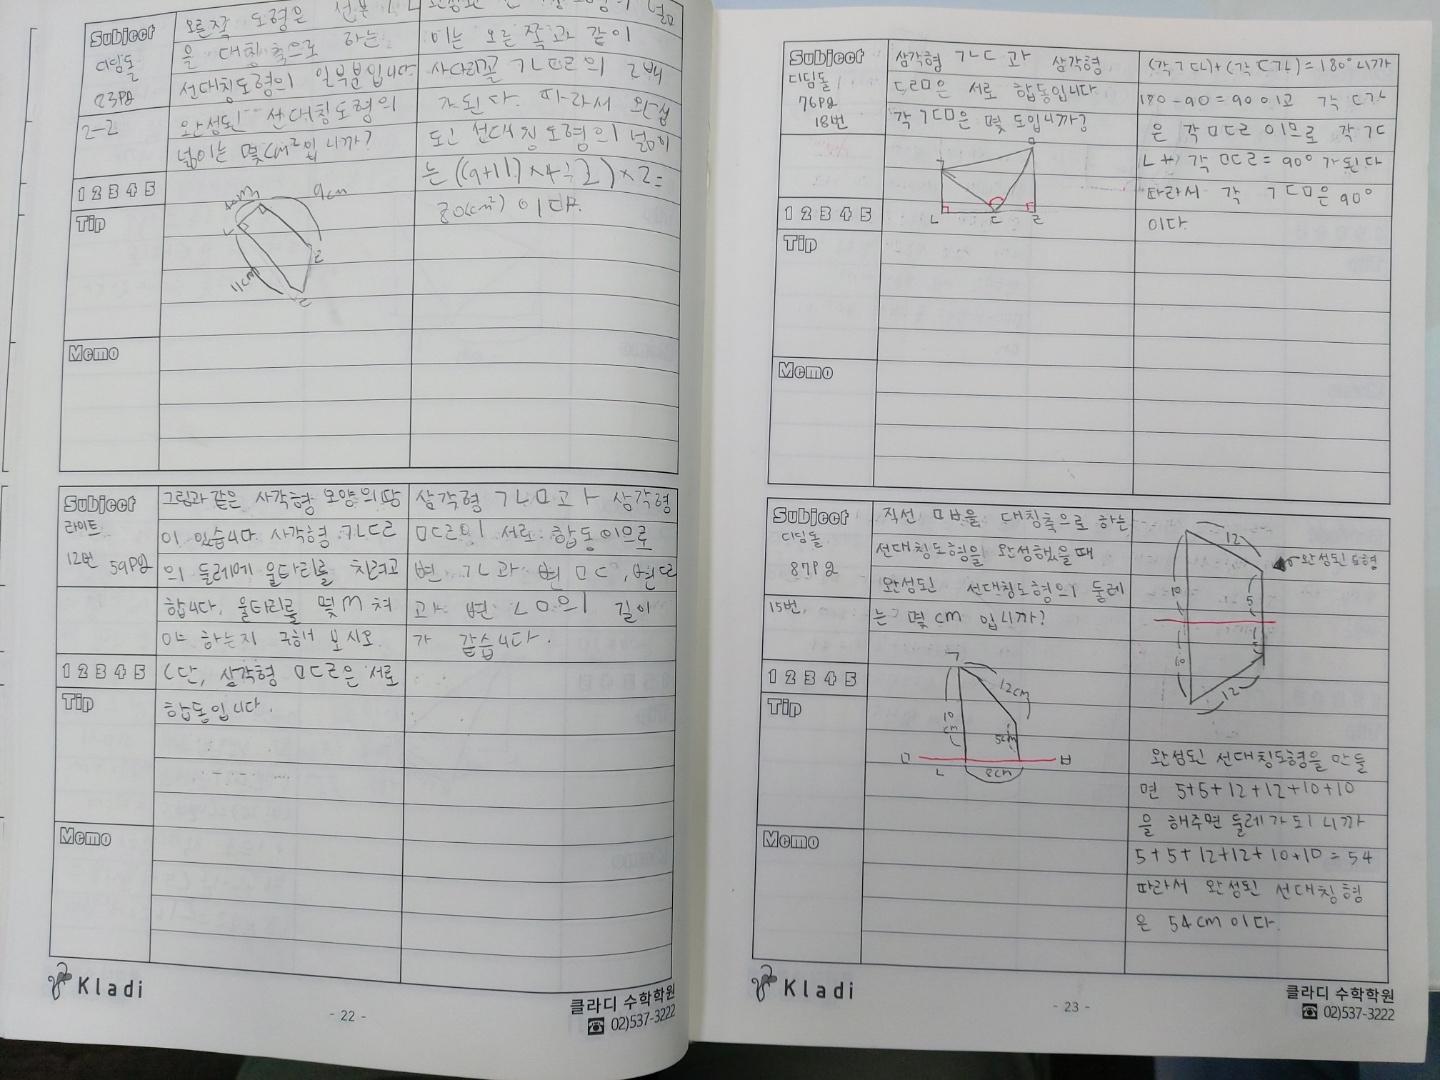 Subject
디딤돌
83pg
2-2
오른쪽 도형은 선분 ㄱㄴ
을 대칭축으로 하는
선대칭도형의 일부분입니다.
완성된 선대칭도형의
넓이는 몇 cm²입니까?
1 2 3 4 5
Tip
9cm
11cm
ㄹ
ㄷ
이는 오른쪽과 같이
사다리꼴 ㄱㄴㄷㄹ의 2배
가 된다. 따라서 완성
된 선대칭도형의 넓이
는 ((9+11)×4÷2)×2=
80(cm²) 이다.
Memo
Subject
라이트
12번 59pg
그림과 같은 사각형 모양의 땅
이 있습니다 사각형 ㄱㄴㄷㄹ
의 둘레에 울타리를 치려고
합니다. 울타리를 몇 m 쳐
야 하는지 구해 보시오
(단, 삼각형 ㅁㄷㄹ은 서로
합동입니다.
1 2 3 4 5
Tip
삼각형 ㄱㄴㅁ과 삼각형
ㅁㄷㄹ이 서로 합동이므로
변 ㄱㄴ과 변 ㅁㄷ, 변 ㄷㄹ
과 변 ㄴㅁ의 길이
가 같습니다.
Memo
Kladi
- 22 -
클라디 수학학원
☎ 02)537-3222
Subject
디딤돌
76pg
18번
삼각형 ㄱㄴㄷ과 삼각형
ㄷㄹㅁ은 서로 합동입니다
각 ㄱㄷㅁ은 몇 도입니까?
ㄱ
ㅁ
ㄴ ㄷ ㄹ
1 2 3 4 5
Tip
(각ㄱㄷㄴ)+(각ㄷㄱㄴ)=180°니까
180-90=90이고 각 ㄷㄱㄴ
은 각 ㅁㄷㄹ이므로 각 ㄱㄷ
ㄴ+각 ㅁㄷㄹ=90°가 된다
따라서 각 ㄱㄷㅁ은 90°
이다.
Memo
Subject
디딤돌
87pg
15번.
직선 ㅁㅂ을 대칭축으로 하는
선대칭도형을 완성했을 때
완성된 선대칭도형의 둘레
는 몇 cm 입니까?
1 2 3 4 5
Tip
ㄱ
12cm
10cm
5cm
ㅁ ㅂ
ㄴ
8cm
12
완성된 도형
10
5
10
12
완성된 선대칭도형을 만들
면 5+5+12+12+10+10
을 해주면 둘레가 되니까
5+5+12+12+10+10=54
따라서 완성된 선대칭형
은 54cm이다.
Memo
Kladi
- 23 -
클라디 수학학원
☎ 02)537-3222